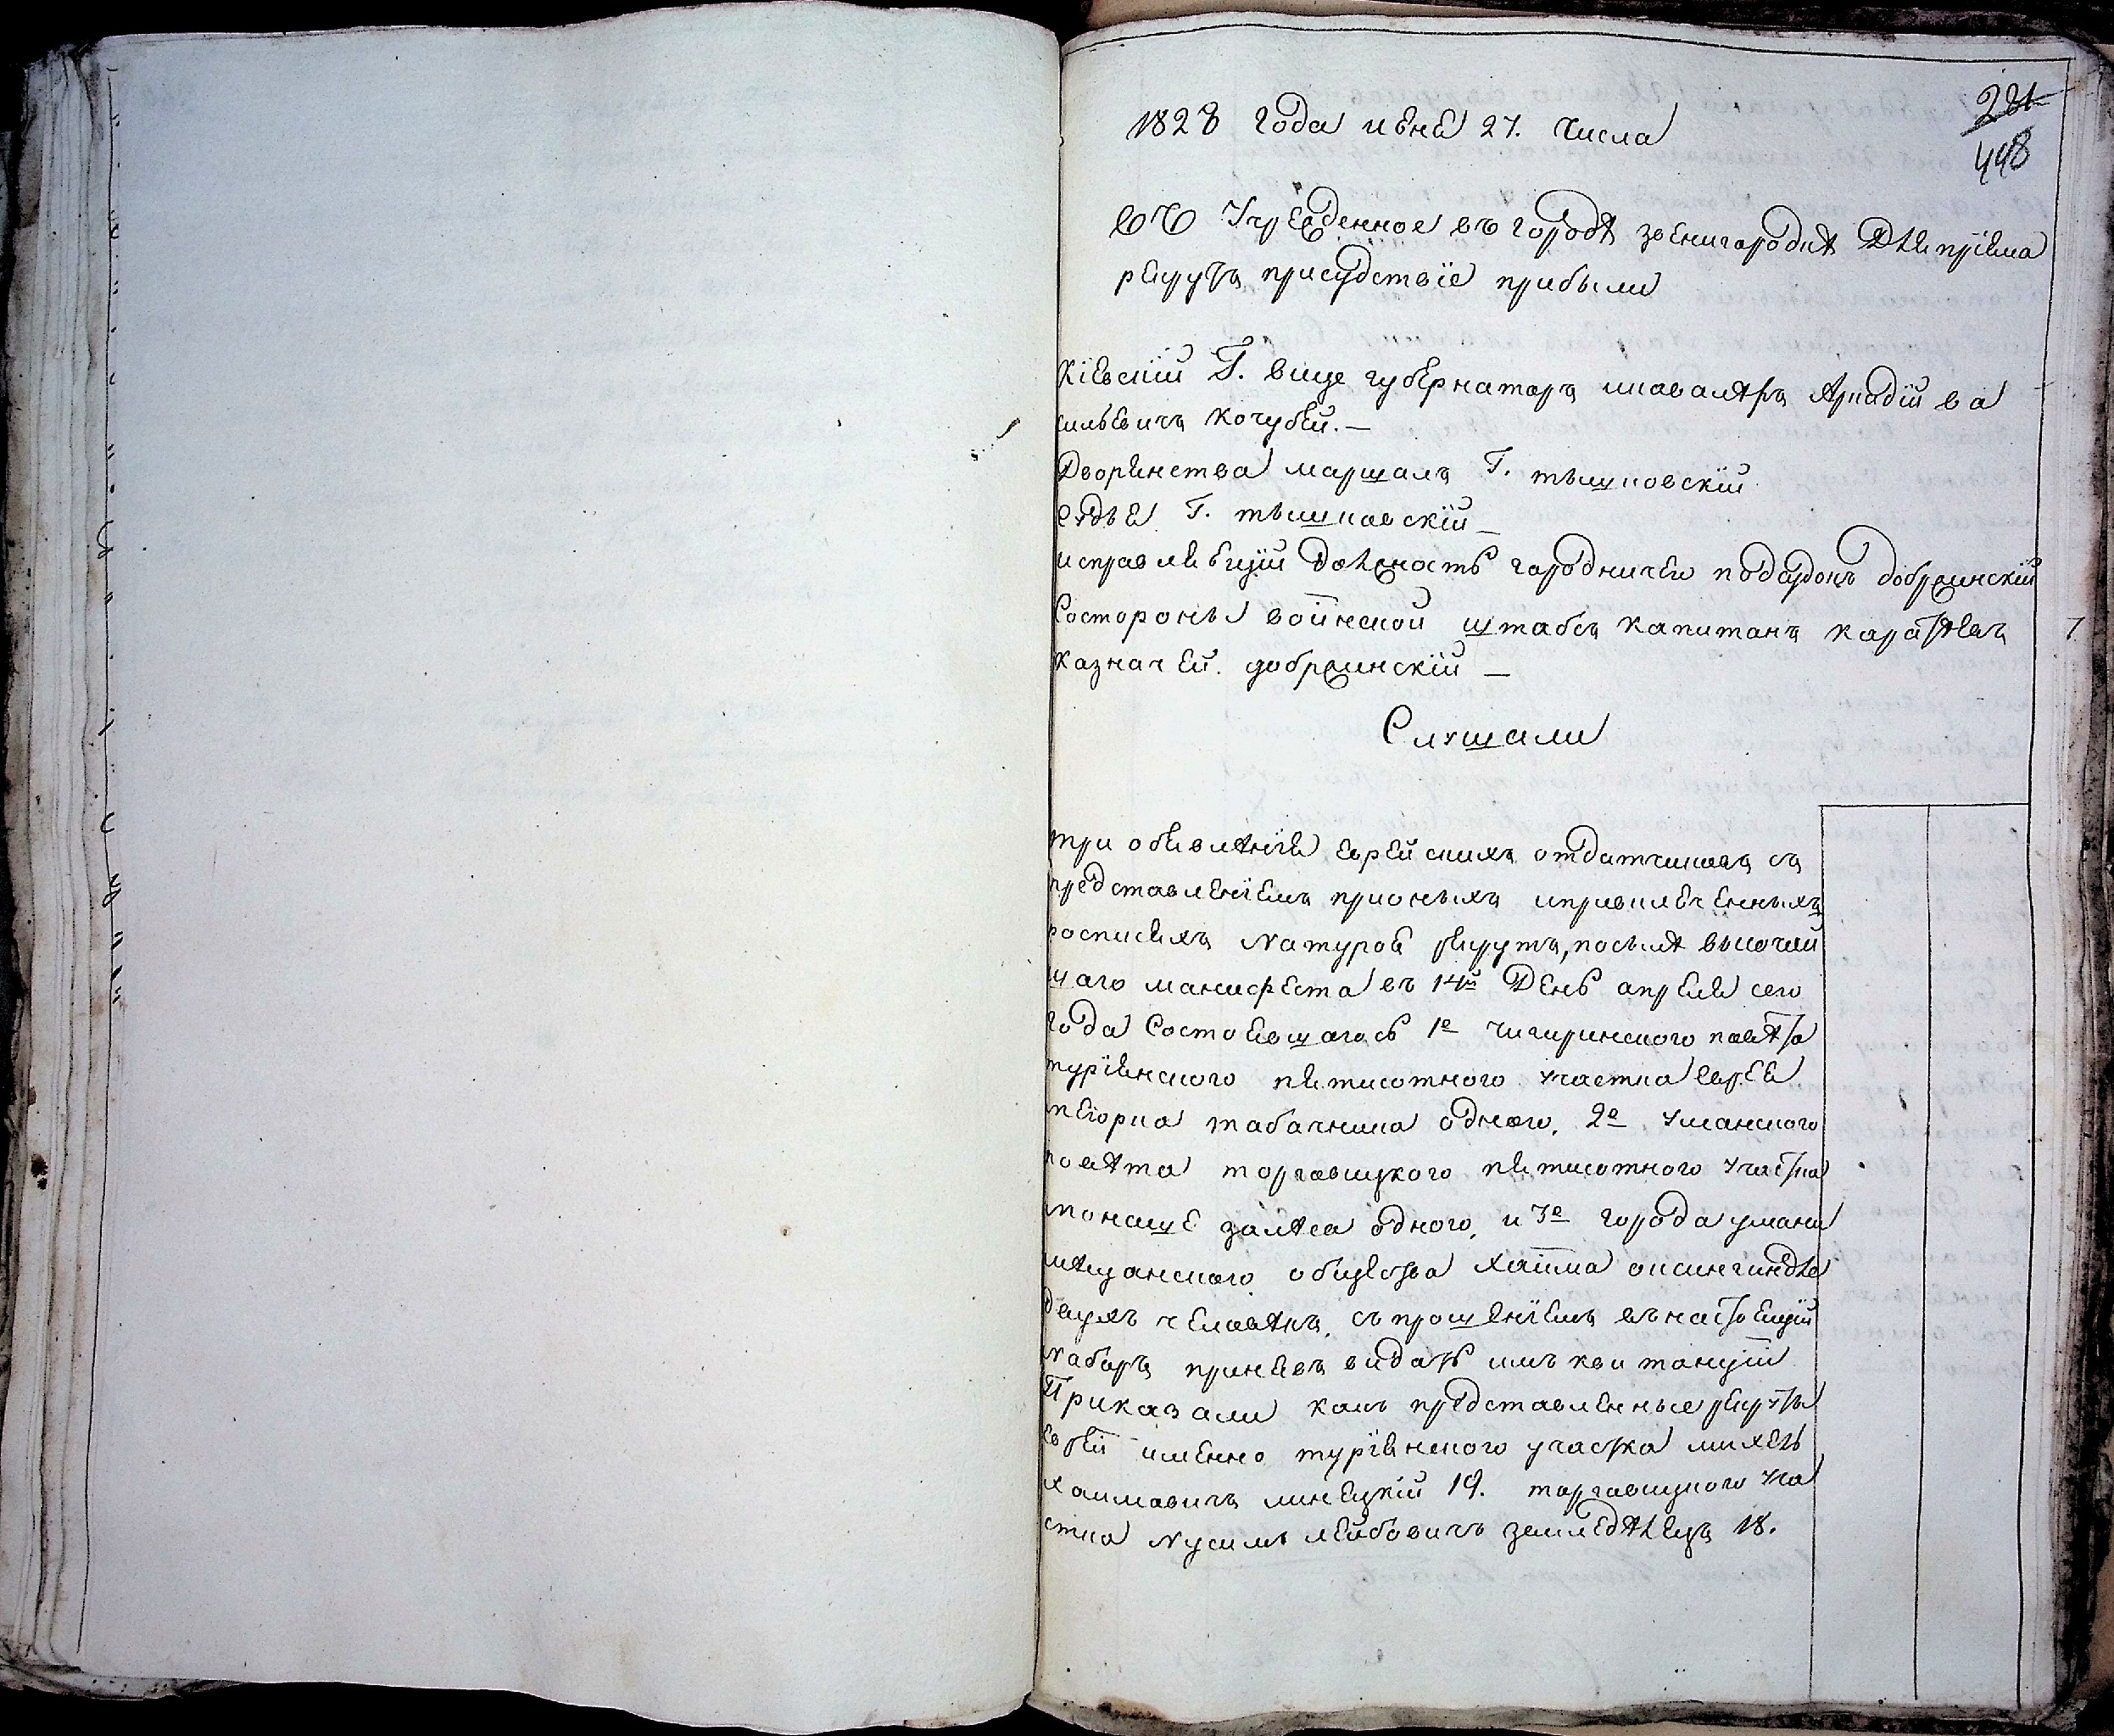 281
448
1828 года июня 27. числа
Въ Учрежденное въ городѣ звенигородкѣ Для пріема
рекрутъ присудствіе прибыли
Кіевскій Г. вице губернаторъ и кавалѣръ Аркадій ва
сильевичъ кочубей. —
Дворянства маршалъ Г. тышковскій
судья Г. тышковскій —
исправляющій должность городничего подпор добржинскій
Состороны воинской штабсъ капитанъ
казначей. добржинскій —
Слушали
три объявлѣнія еврейскихъ отдатчиковъ съ
представленіемъ при оныхъ и при
росписяхъ Натурой рекрутъ, по силѣ высочай
шаго манифеста въ 14й День апреля сего
года Состоявшагось 1е чигиринского повѣта
туріянского пятисотного участка еврея
табачника одного, 2е уманского
повѣта торговицкого пятисотного участка
одного, и 3е города умани
мѣщанского общества Хаима
двухъ человѣкъ, съ прошеніемъ въ настоящій
Наборъ принявъ видать имъ квитанціи
Приказали какъ представленные рекруты
евреи именно туріянского участка михель
хаимовичъ линецкій 19. торговицкого уча
стка Нусимъ лейбовичъ землѣдѣлецъ 18.